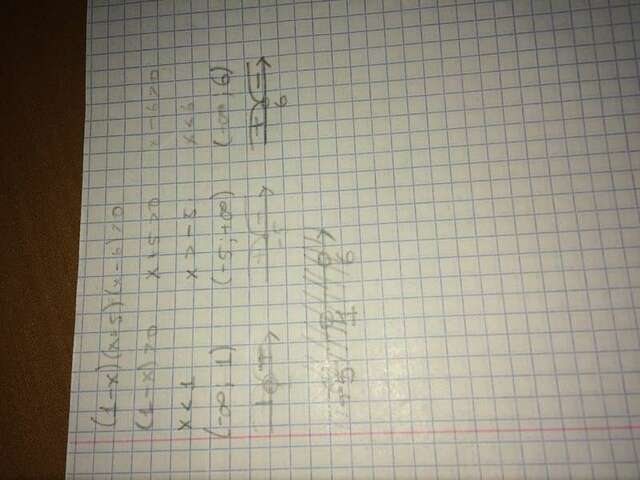 (1-x)(x+5)(x-6)>0
(1-x)>0 x+5>0 x-6>0
x<1 x>-5 x<6
(-∞; 1) (-5; +∞) (-∞; 6)
6
-5 1 6